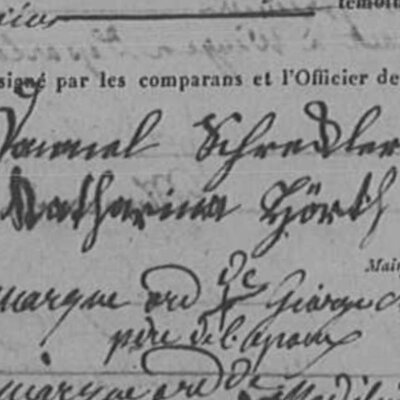 témoin
signé par les comparans et l'Officier de
Samuel Schredler
Katharina Hörth
Mai
marque ord de George
père de l'époux
marque ord de